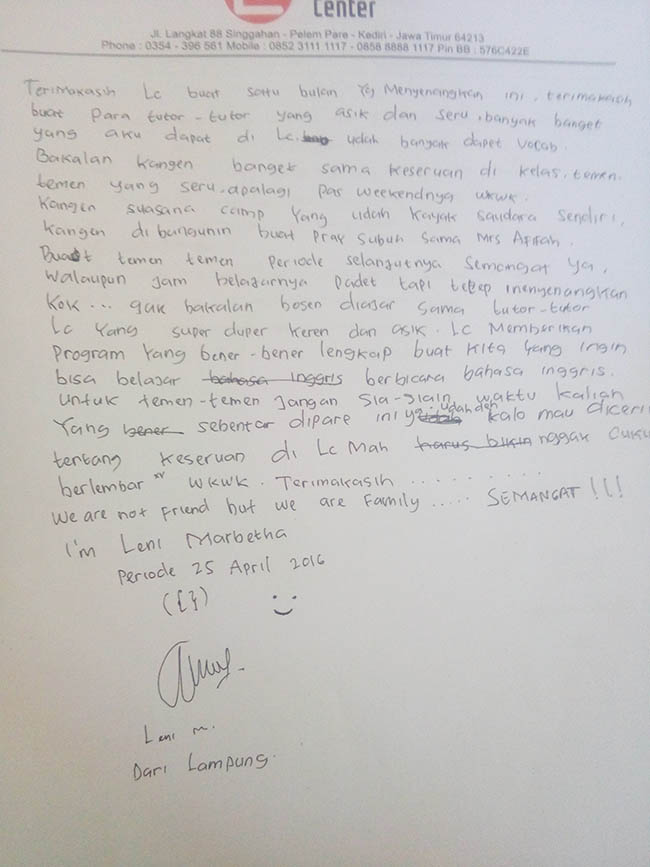 Center
Jl. Langkat 88 Singgahan - Pelem Pare - Kediri - Jawa Timur 64213
Phone : 0354 - 396 561 Mobile : 0852 3111 1117 - 0858 8888 1117 Pin BB : 576C422E
Terimakasih Lc buat satu bulan yg menyenangkan ini, terimakasih
buat para tutor-tutor yang asik dan seru, banyak banget
yang aku dapat di Lc. udah banyak dapet vocab.
Bakalan kangen banget sama keseruan di kelas, temen
temen yang seru, apalagi pas weekendnya wkwk.
Kangen suasana camp yang udah kayak saudara sendiri,
kangen dibangunin buat pray subuh sama Mrs Afifah.
Buat temen temen periode selanjutnya semangat ya,
walaupun jam belajarnya padet tapi tetep menyenangkan
kok... gak bakalan bosen diajar sama tutor-tutor
Lc yang super duper keren dan asik. Lc memberikan
program yang bener-bener lengkap buat kita yang ingin
bisa belajar bahasa inggris berbicara bahasa inggris.
Untuk temen-temen jangan sia-siain waktu kalian
yang bener sebentar dipare ini ya.. udah deh kalo mau diceri
tentang keseruan di Lc mah harus bikin nggak cuku
berlembar" wkwk. Terimakasih .........
We are not friend but we are family ..... SEMANGAT !!!
I'm Leni Marbetha
Periode 25 April 2016
({})
Leni M.
Dari Lampung.